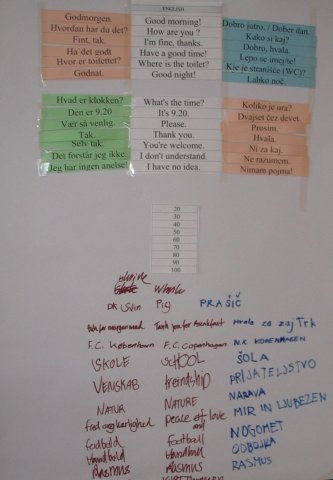 ENGLISH
Godmorgen. Good morning! Dobro jutro. / Dober dan.
Hvordan har du det? How are you ? Kako si kaj?
Fint, tak. I'm fine, thanks. Dobro, hvala.
Ha' det godt Have a good time! Lepo se imej/te!
Hvor er toilettet? Where is the toilet? Kje je stranišče (WC)?
Godnat. Good night! Lahko noč.
Hvad er klokken? What's the time? Koliko je ura?
Den er 9.20 It's 9.20 Dvajset čez devet.
Vær så venlig. Please. Prosim.
Tak. Thank you. Hvala.
Selv tak. You're welcome. Ni za kaj.
Det forstår jeg ikke. I don't understand. Ne razumem.
Jeg har ingen anelse! I have no idea. Nimam pojma!
20
30
40
50
60
70
80
90
100
DK Svin Pig PRAŠIČ
Tak for morgenmad Thank you for breakfast Hvala za zajTrk
F.C. København F.C. Copenhagen N.K. KOBENHAGEN
SKOLE SCHOOL ŠOLA
VENSKAB freindship PRIJATELJSTVO
NATUR NATURE NARAVA
fred og kærlighed peace and love MIR IN LJUBEZEN
fodbold football NOGOMET
Håndbold Handball ODBOJKA
RASMUS RASMUS RASMUS